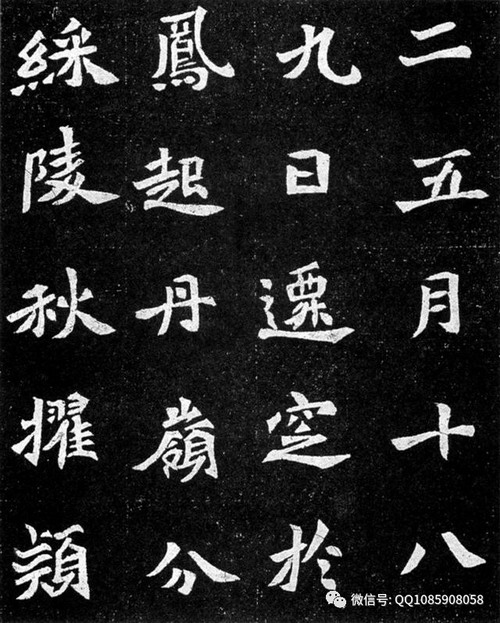 二五月十八
九日遷窆於
鳳起丹嶺分
綵陵秋擢穎
微信号: QQ1085908058